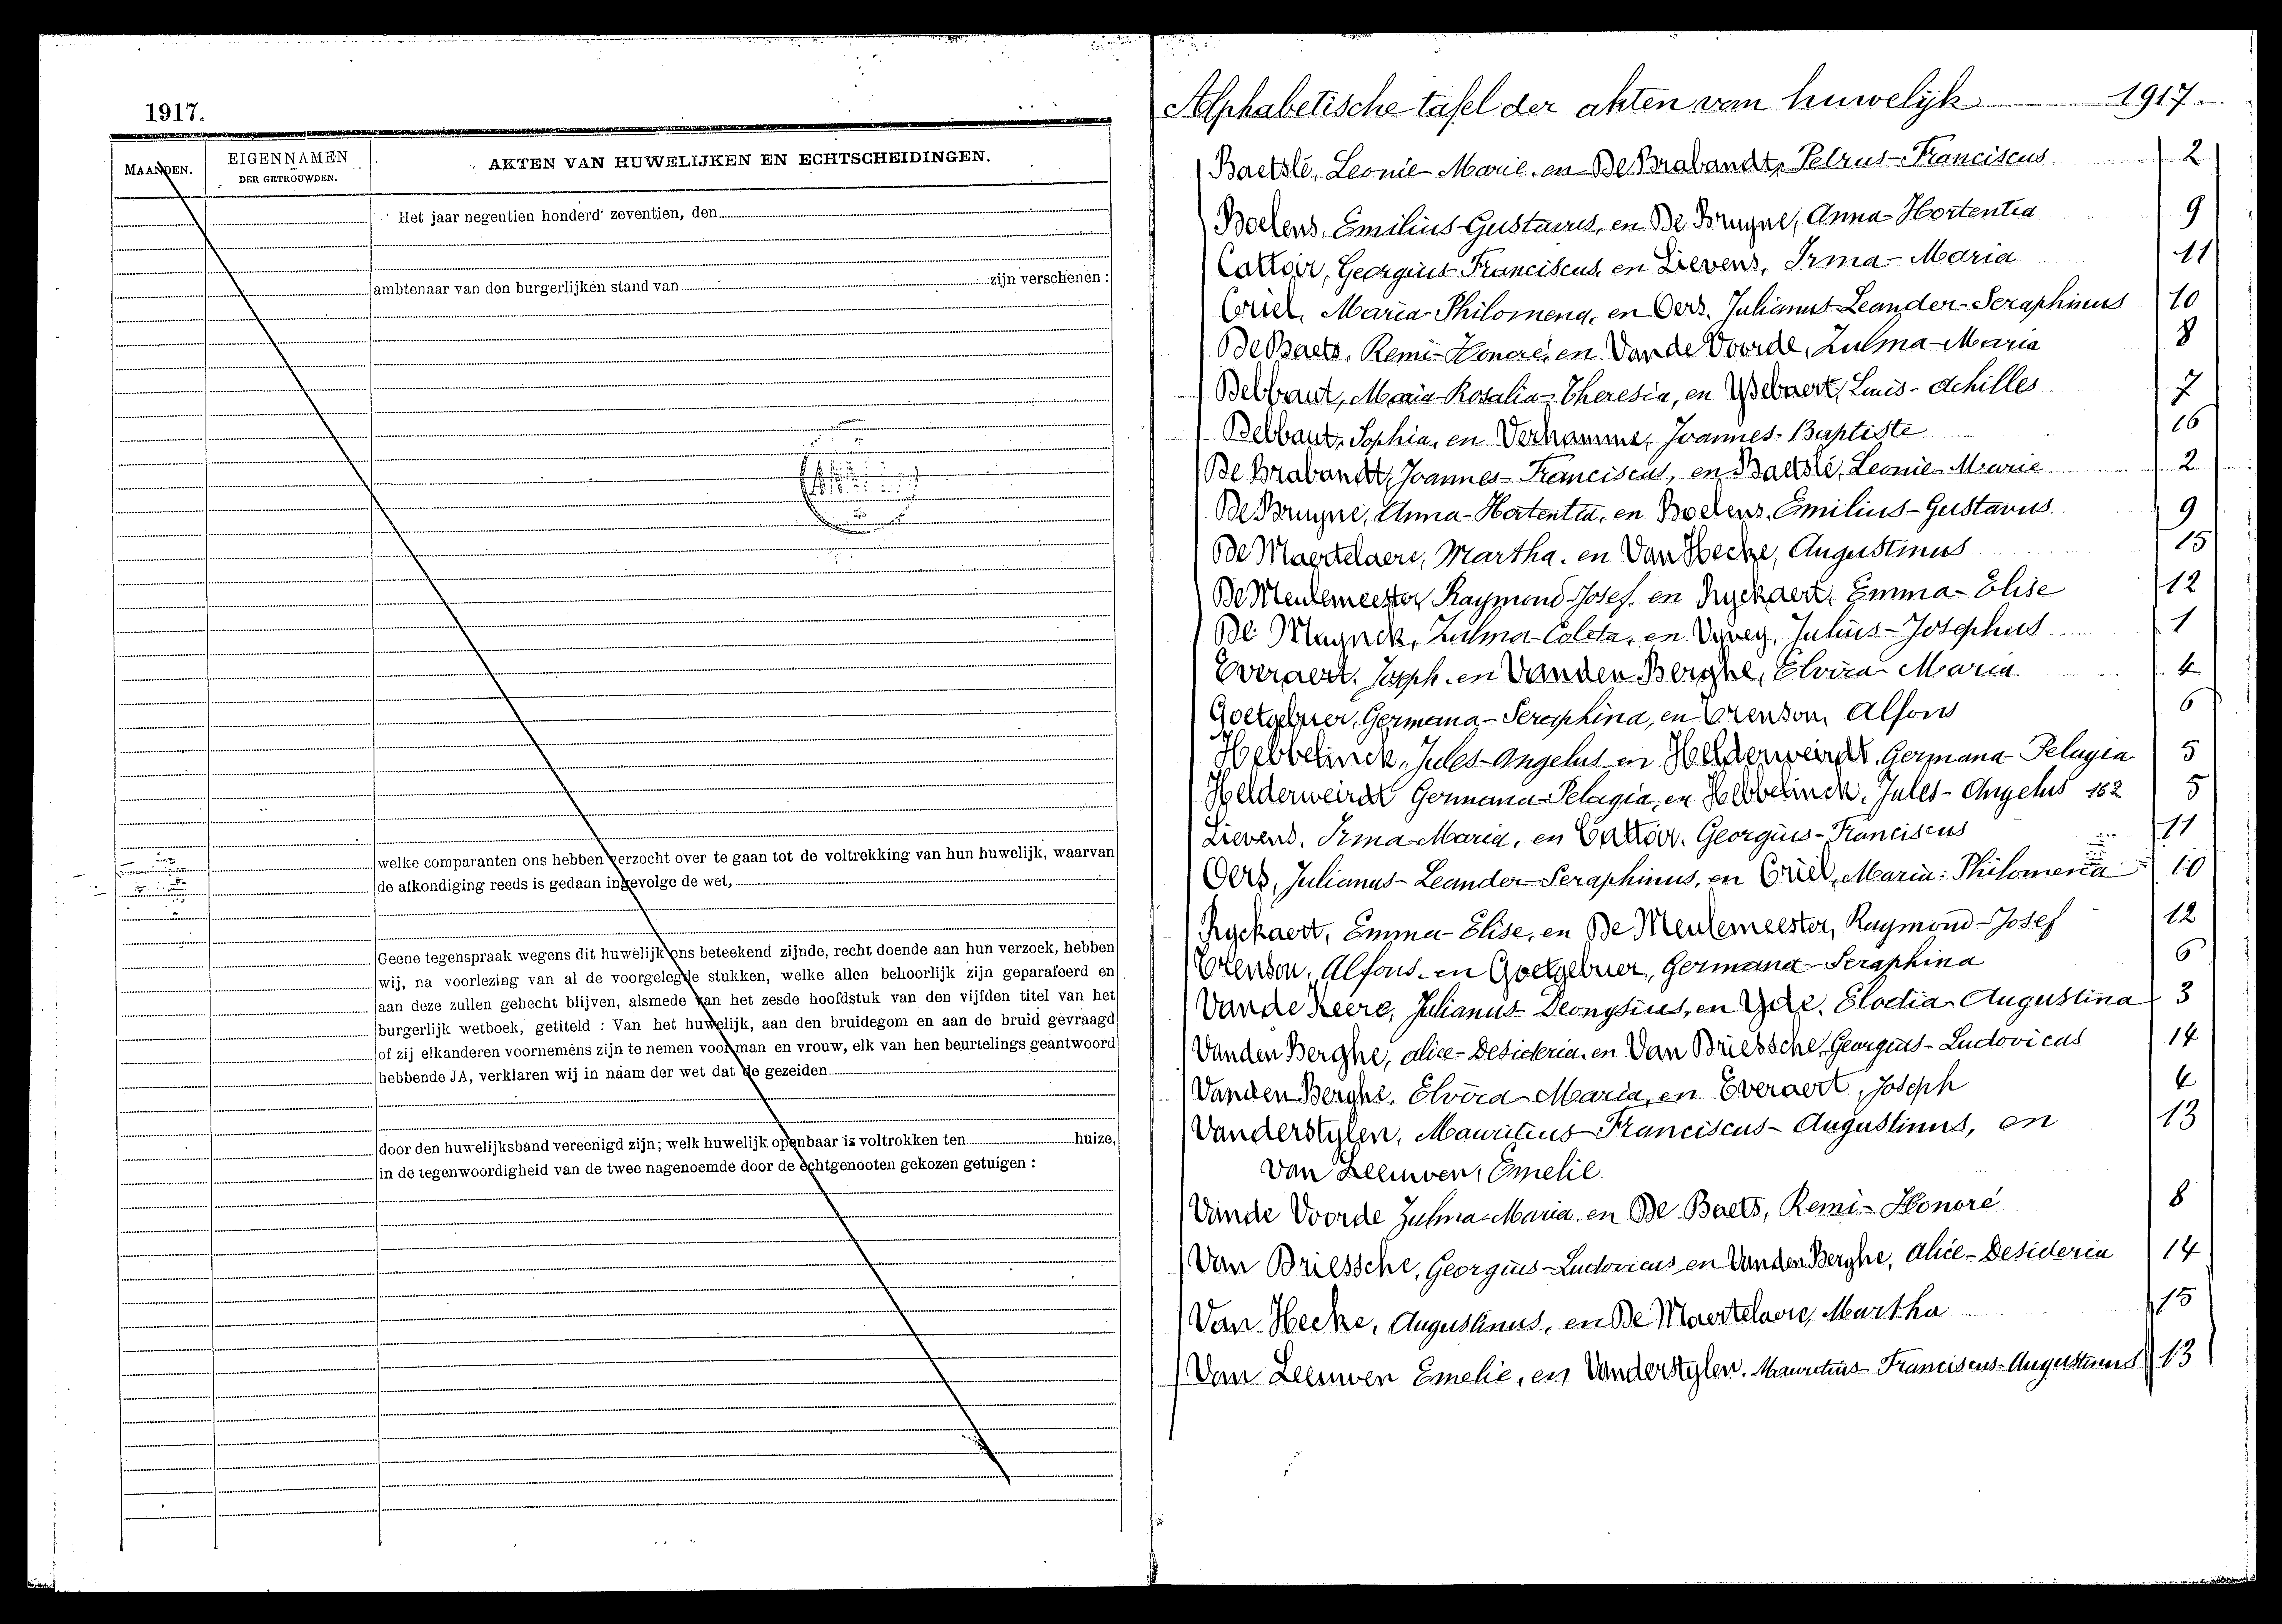 1917.
MAANDEN.
EIGENNAMEN
DER GETROUWDEN.
AKTEN VAN HUWELIJKEN EN ECHTSCHEIDINGEN.
Het jaar negentien honderd zeventien, den
ambtenaar van den burgerlijken stand van zijn verschenen :
welke comparanten ons hebben verzocht over te gaan tot de voltrekking van hun huwelijk, waarvan
de afkondiging reeds is gedaan ingevolge de wet,
Geene tegenspraak wegens dit huwelijk ons beteekend zijnde, recht doende aan hun verzoek, hebben
wij, na voorlezing van al de voorgelegde stukken, welke allen behoorlijk zijn geparafeerd en
aan deze zullen gehecht blijven, alsmede van het zesde hoofdstuk van den vijfden titel van het
burgerlijk wetboek, getiteld : Van het huwelijk, aan den bruidegom en aan de bruid gevraagd
of zij elkanderen voornemens zijn te nemen voor man en vrouw, elk van hen beurtelings geantwoord
hebbende JA, verklaren wij in naam der wet dat de gezeiden
door den huwelijksband vereenigd zijn; welk huwelijk openbaar is voltrokken ten huize,
in de tegenwoordigheid van de twee nagenoemde door de echtgenooten gekozen getuigen :
Alphabetische tafel der akten van huwelijk 1917.
Baetslé, Leonie-Marie, en De Brabandt, Petrus-Franciscus 2
Boelens, Emilius-Gustavus, en De Bruyne, Anna-Hortentia 9
Cattoir, Georgius-Franciscus, en Lievens, Irma-Maria 11
Criel, Maria-Philomena, en Oers, Julianus-Leander-Seraphinus 10
De Baets, Remi-Honoré, en Van de Voorde, Zulma-Maria 8
Debbaut, Maria-Rosalia-Theresia, en Ysebaert, Louis-Achilles 7
Debbaut, Sophia, en Verhamme, Joannes-Baptiste 16
De Brabandt, Joannes-Franciscus, en Baetslé, Leonie-Marie 2
De Bruyne, Anna-Hortentia, en Boelens, Emilius-Gustavus 9
De Maertelaere, Martha, en Van Hecke, Augustinus 15
De Meulemeester Raymond-Josef, en Ryckaert, Emma-Elise 12
De Muynck, Zulma-Coleta, en Vyvey, Julius-Josephus 1
Everaert, Joseph, en Vanden Berghe, Elvira-Maria 4
Goetgebuer, Germana-Seraphina, en Trenson, Alfons 6
Hebbelinck, Jules-Angelus en Helderweirdt, Germana-Pelagia 5
Helderweirdt Germana-Pelagia, en Hebbelinck, Jules-Angelus 162 5
Lievens, Irma-Maria, en Cattoir, Georgius-Franciscus 11
Oers, Julianus-Leander-Seraphinus, en Criel, Maria-Philomena 10
Ryckaert, Emma-Elise, en De Meulemeester, Raymond-Josef 12
Trenson, Alfons, en Goetgebuer, Germana-Seraphina 6
Van de Keere, Julianus-Deonysius, en Yde, Elodia-Augustina 3
Vanden Berghe, Alice-Desideria, en Van Driessche, Georgius-Ludovicus 14
Vanden Berghe, Elvira-Maria, en Everaert, Joseph 4
Vanderstylen, Mauritius-Franciscus-Augustinus, en 13
Van Leeuwen, Emelie
Van de Voorde Zulma-Maria, en De Baets, Remi-Honoré 8
Van Driessche, Georgius-Ludovicus en Vanden Berghe, Alice-Desideria 14
Van Hecke, Augustinus, en De Maertelaere, Martha 15
Van Leeuwen Emelie, en Vanderstylen, Mauritius-Franciscus-Augustinus 13